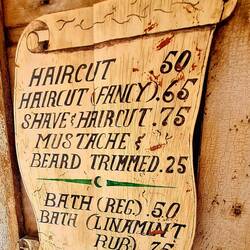 HAIRCUT .50
HAIRCUT (FANCY) .65
SHAVE & HAIRCUT .75
MUSTACHE &
BEARD TRIMMED .25
BATH (REG.) .50
BATH (LINAMINT
RUB) .75